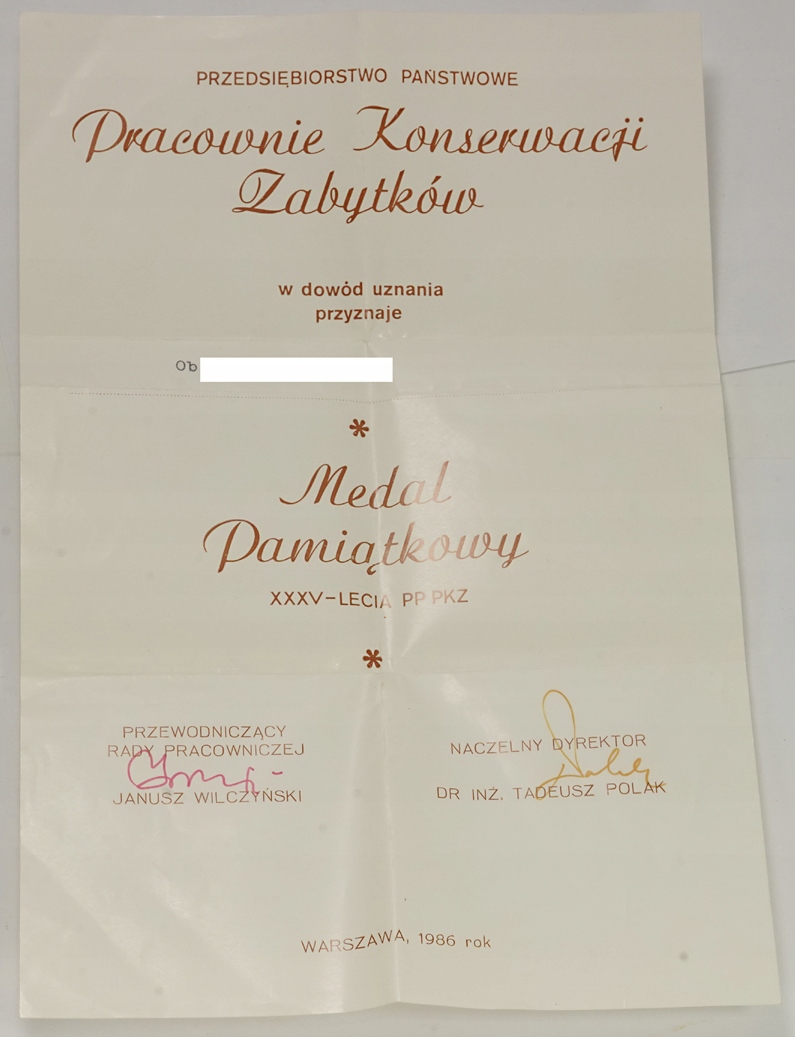 PRZEDSIĘBIORSTWO PAŃSTWOWE
Pracownie Konserwacji
Zabytków
w dowód uznania
przyznaje
Ob
*
Medal
Pamiątkowy
XXXV-LECIA PP PKZ
*
PRZEWODNICZĄCY
RADY PRACOWNICZEJ
JANUSZ WILCZYŃSKI
NACZELNY DYREKTOR
DR INŻ. TADEUSZ POLAK
WARSZAWA, 1986 rok